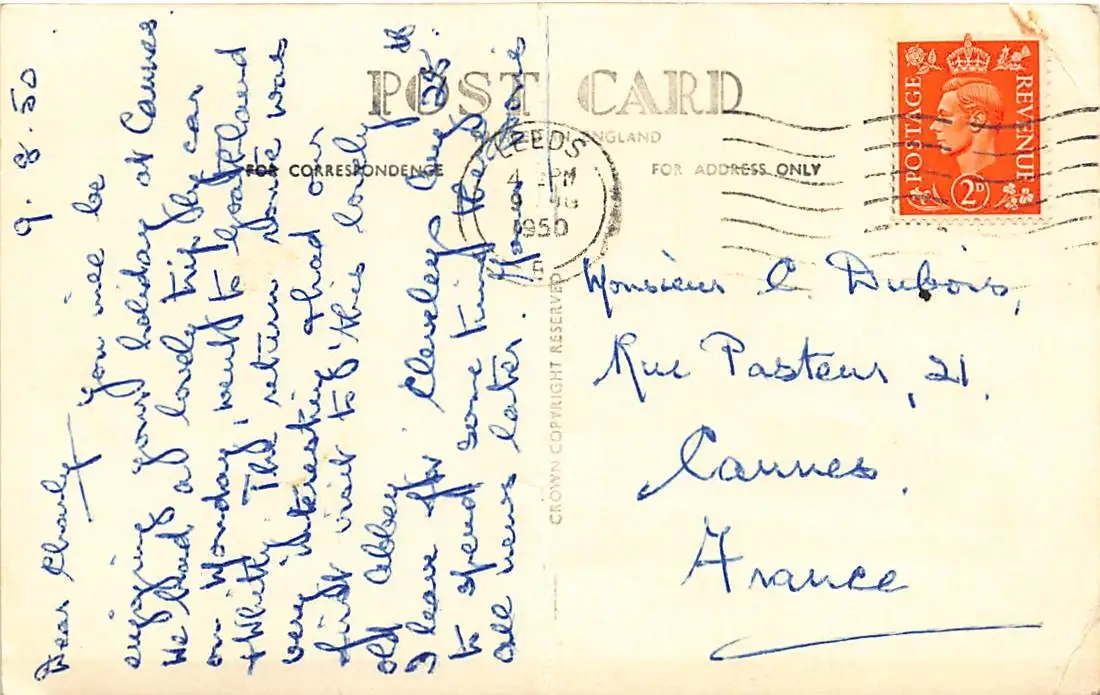 POST CARD
PRINTED IN ENGLAND
FOR CORRESPONDENCE
FOR ADDRESS ONLY
CROWN COPYRIGHT RESERVED
LEEDS
4 PM
9 AUG
1950
POSTAGE
REVENUE
2D
9.8.50
Dear Charly,
you will be
enjoying your holiday at Cannes
We had a lovely trip by car
on Monday, went to Goathland
+ Whitby. The return route was
very interesting + had our
first visit to this lovely
old abbey.
I leave for Cleveleys Aug 25th
to spend some time there.
All news later.
Monsieur C. Dubois,
Rue Pasteur, 21.
Cannes.
France